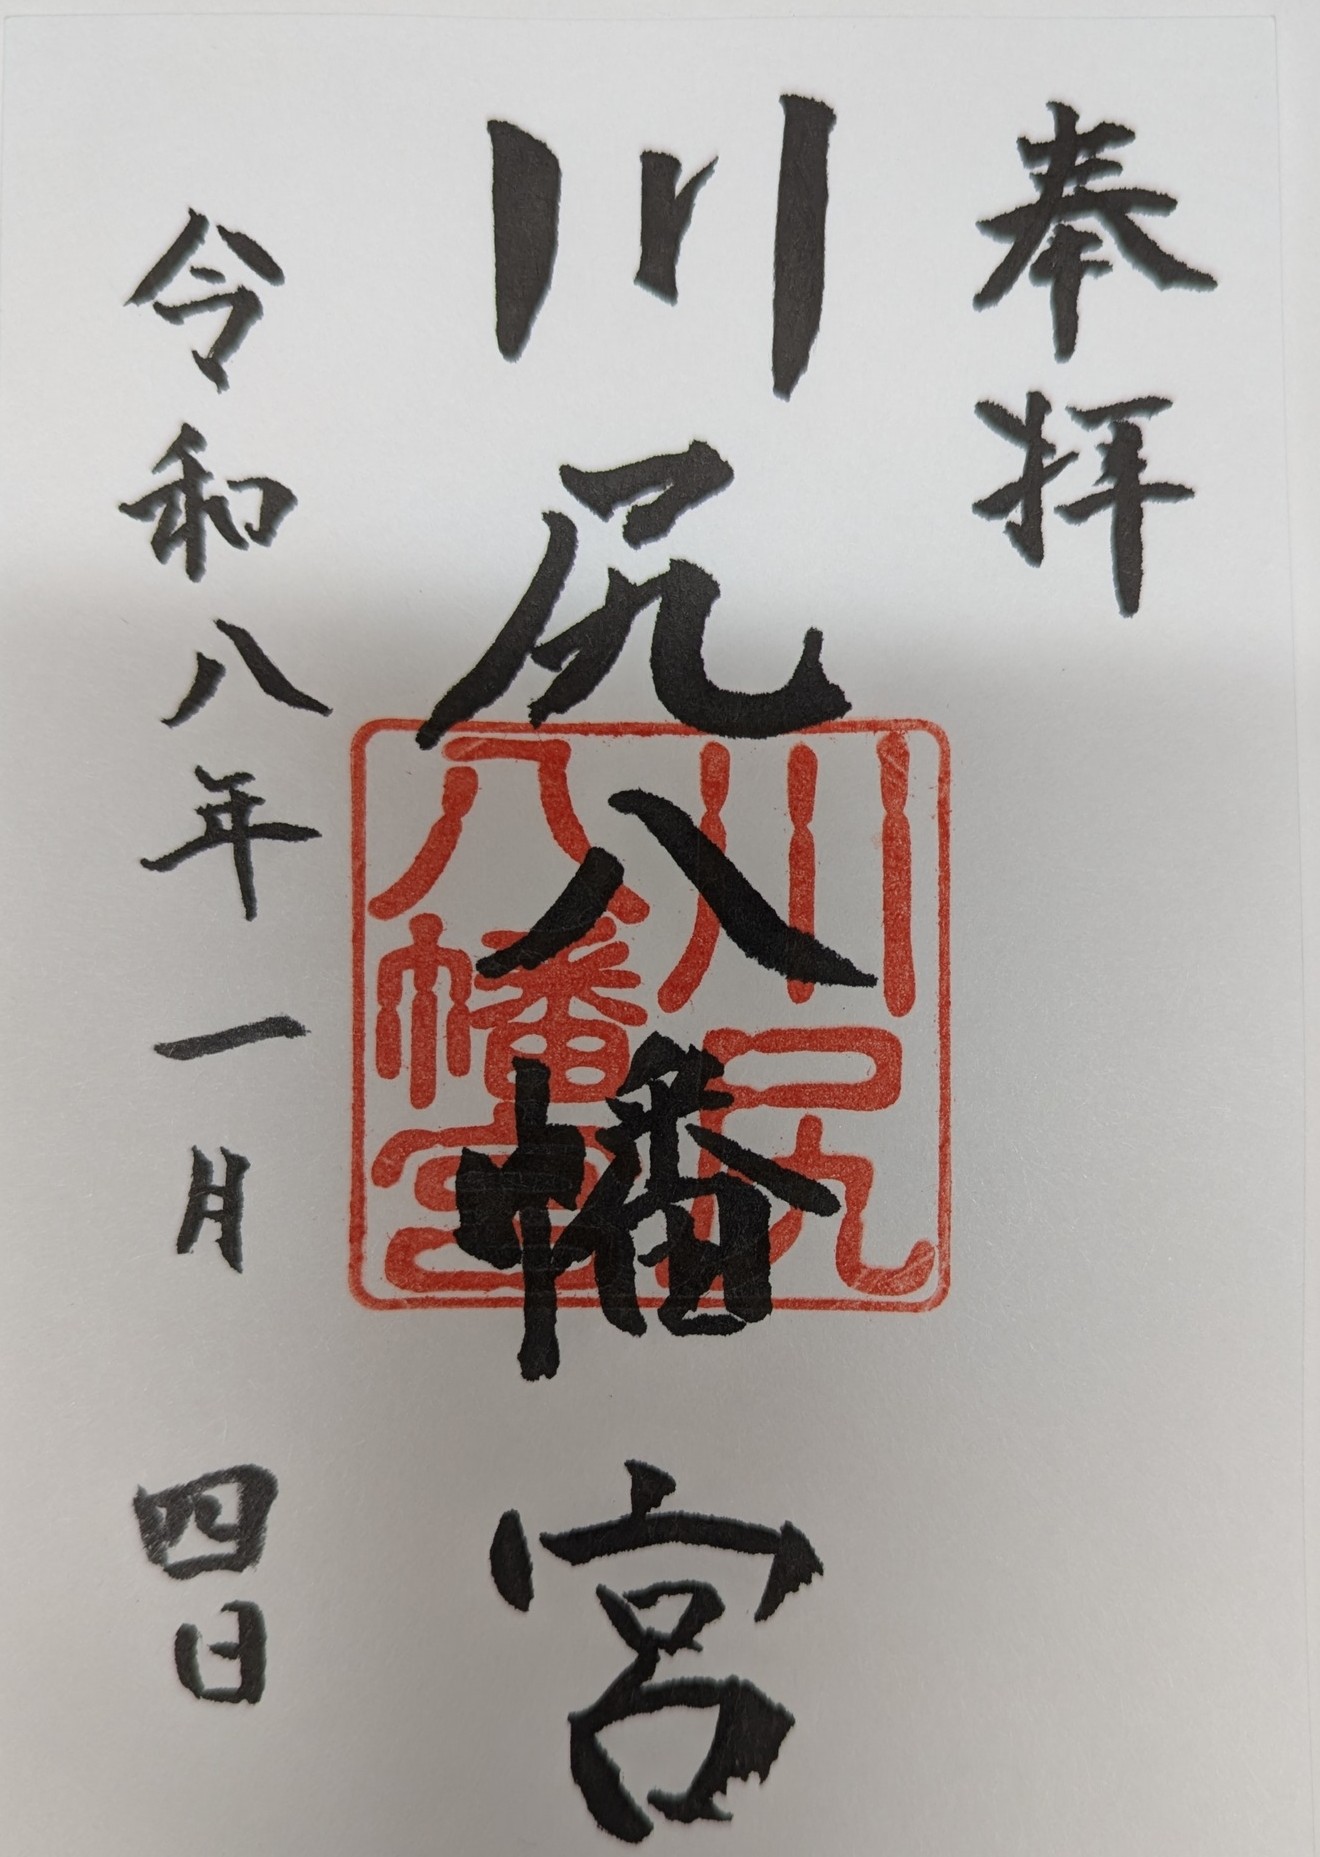 奉拝
川尻八幡宮
川尻
八幡宮
令和八年一月四日